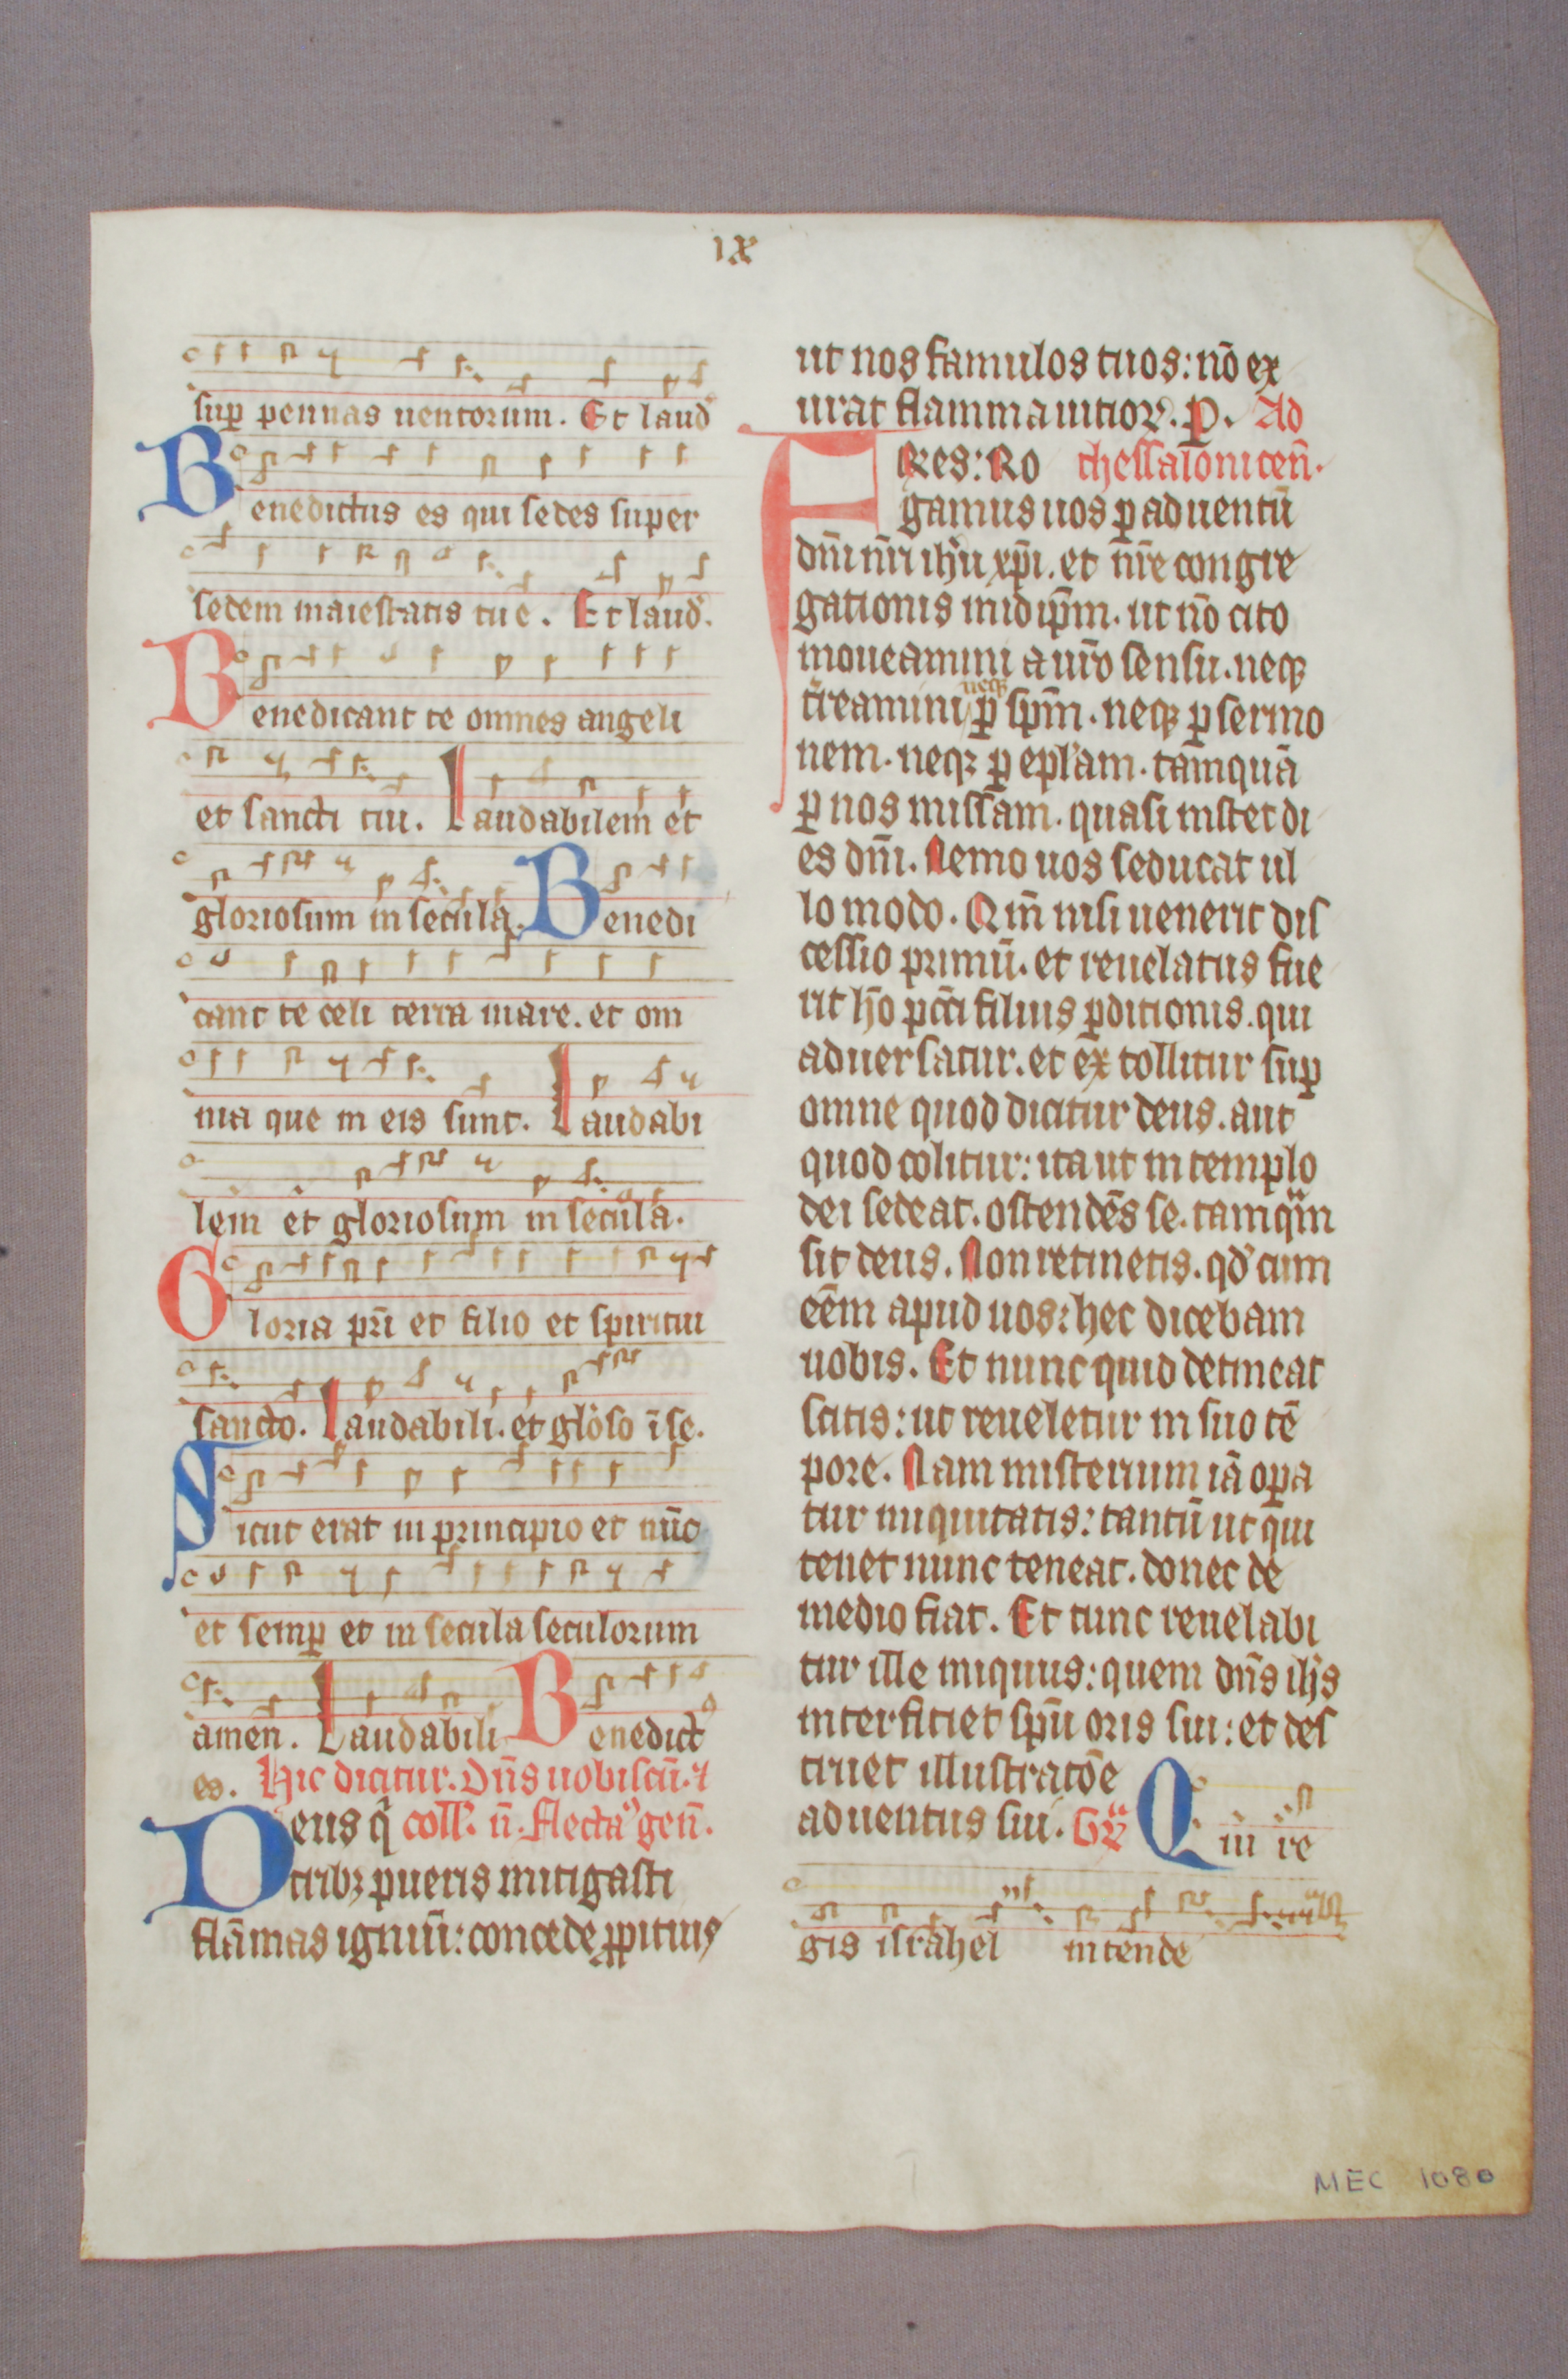 ix
sup̱ pennas uentorum. Et laud
Benedictus es qui sedes super
sedem maiestatis tue. Et laud.
Benedicant te omnes angeli
et sancti tui. Laudabilem et
gloriosum in secula. Benedi
cant te celi terra mare. et om
nia que in eis sunt. Laudabi
lem et gloriosum in secula.
Gloria pr̄i et filio et spiritui
sancto. Laudabili. et glo̅so ī se.
Sicut erat in principio et nūc
et semp̱ et in secula seculorum
amen. Laudabili Benedict
es. Hic dicitur. Dn̄s uobiscū. ⁊
Deus q̄ coll. n̄. flectaͬ gen̄.
tribꝫ pueris mitigasti
flāmas igniū: concede ꝓpitius
ut nos famulos tuos: nō ex
urat flamma uitioꝝ. P. Ad
FRes: Ro thessalonicen̄.
gamus uos ꝑ aduentū
dn̄i nr̄i ih̄u xp̄i. et nr̄e congre
gationis in idip̄m. ut nō cito
moueamini a ur̄o sensu. neqꝫ
t̄reamini neqꝫ ꝑ sp̄m. neqꝫ ꝑ sermo
nem. neqꝫ ꝑ epl̄am. tamquā
ꝑ nos missam. quasi instet di
es dn̄i. Nemo uos seducat ul
lo modo. Qm̄ nisi uenerit dis
cessio primū. et reuelatus fue
rit ho̅ pcc̄i filius ꝑditionis. qui
aduersatur. et extollitur sup̱
omne quod dicitur deus. aut
quod colitur: ita ut in templo
dei sedeat. ostendēs se. tamqͣm
sit deus. Non retinetis. qd̄ cum
eēm apud uos: hec dicebam
uobis. Et nunc quid detineat
scitis: ut reueletur in suo tē
pore. Nam misterium iā oꝑa
tur iniquitatis: tantū ut qui
tenet nunc teneat. donec de
medio fiat. Et tunc reuelabi
tur ille iniquus: quem dn̄s ih̄s
interficiet sp̄u oris sui: et des
truet illustratōe
aduentus sui. Qui re
gis israhel intende
MEC 1080